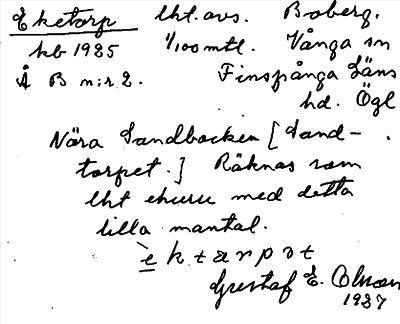 Eketorp lht. avs. Boberg.
kb 1925 1/100 mtl. Vånga sn
Å B n:r 2. Finspånga Läns
hd. Ögl
Nära Sandbacken [Sand-
torpet.] Räknas som
lht ehuru med detta
lilla mantal.
Gustaf E. Olsson
1927